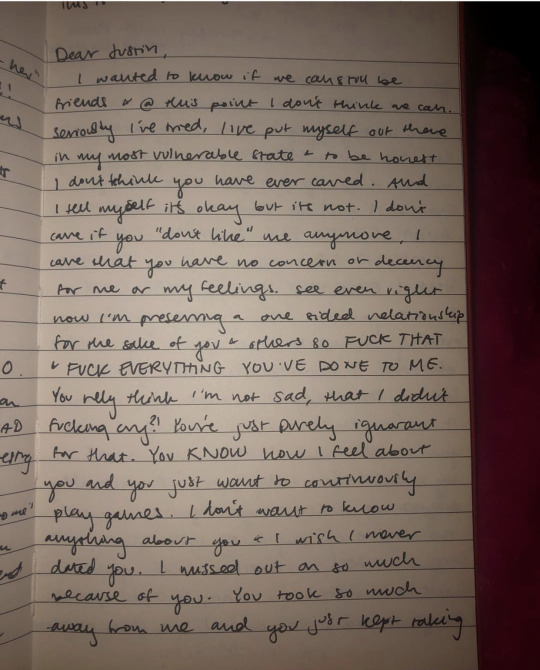 Dear Justin,
I wanted to know if we can still be
friends & @ this point I don't think we can.
Seriously I've tried, I've put myself out there
in my most vulnerable state & to be honest
I dont think you have ever cared. And
I tell myself its okay but its not. I don't
care if you "don't like" me anymore, I
care that you have no concern or decency
for me or my feelings. see even right
now I'm preserving a one sided relationship
for the sake of you & others so FUCK THAT
& FUCK EVERYTHING YOU'VE DONE TO ME.
You rely think I'm not sad, that I didn't
fucking cry?! You're just purely ignorant
for that. You KNOW how I feel about
you and you just want to continuously
play games. I don't want to know
anything about you & I wish I never
dated you. I missed out on so much
because of you. You took so much
away from me and you just kept taking